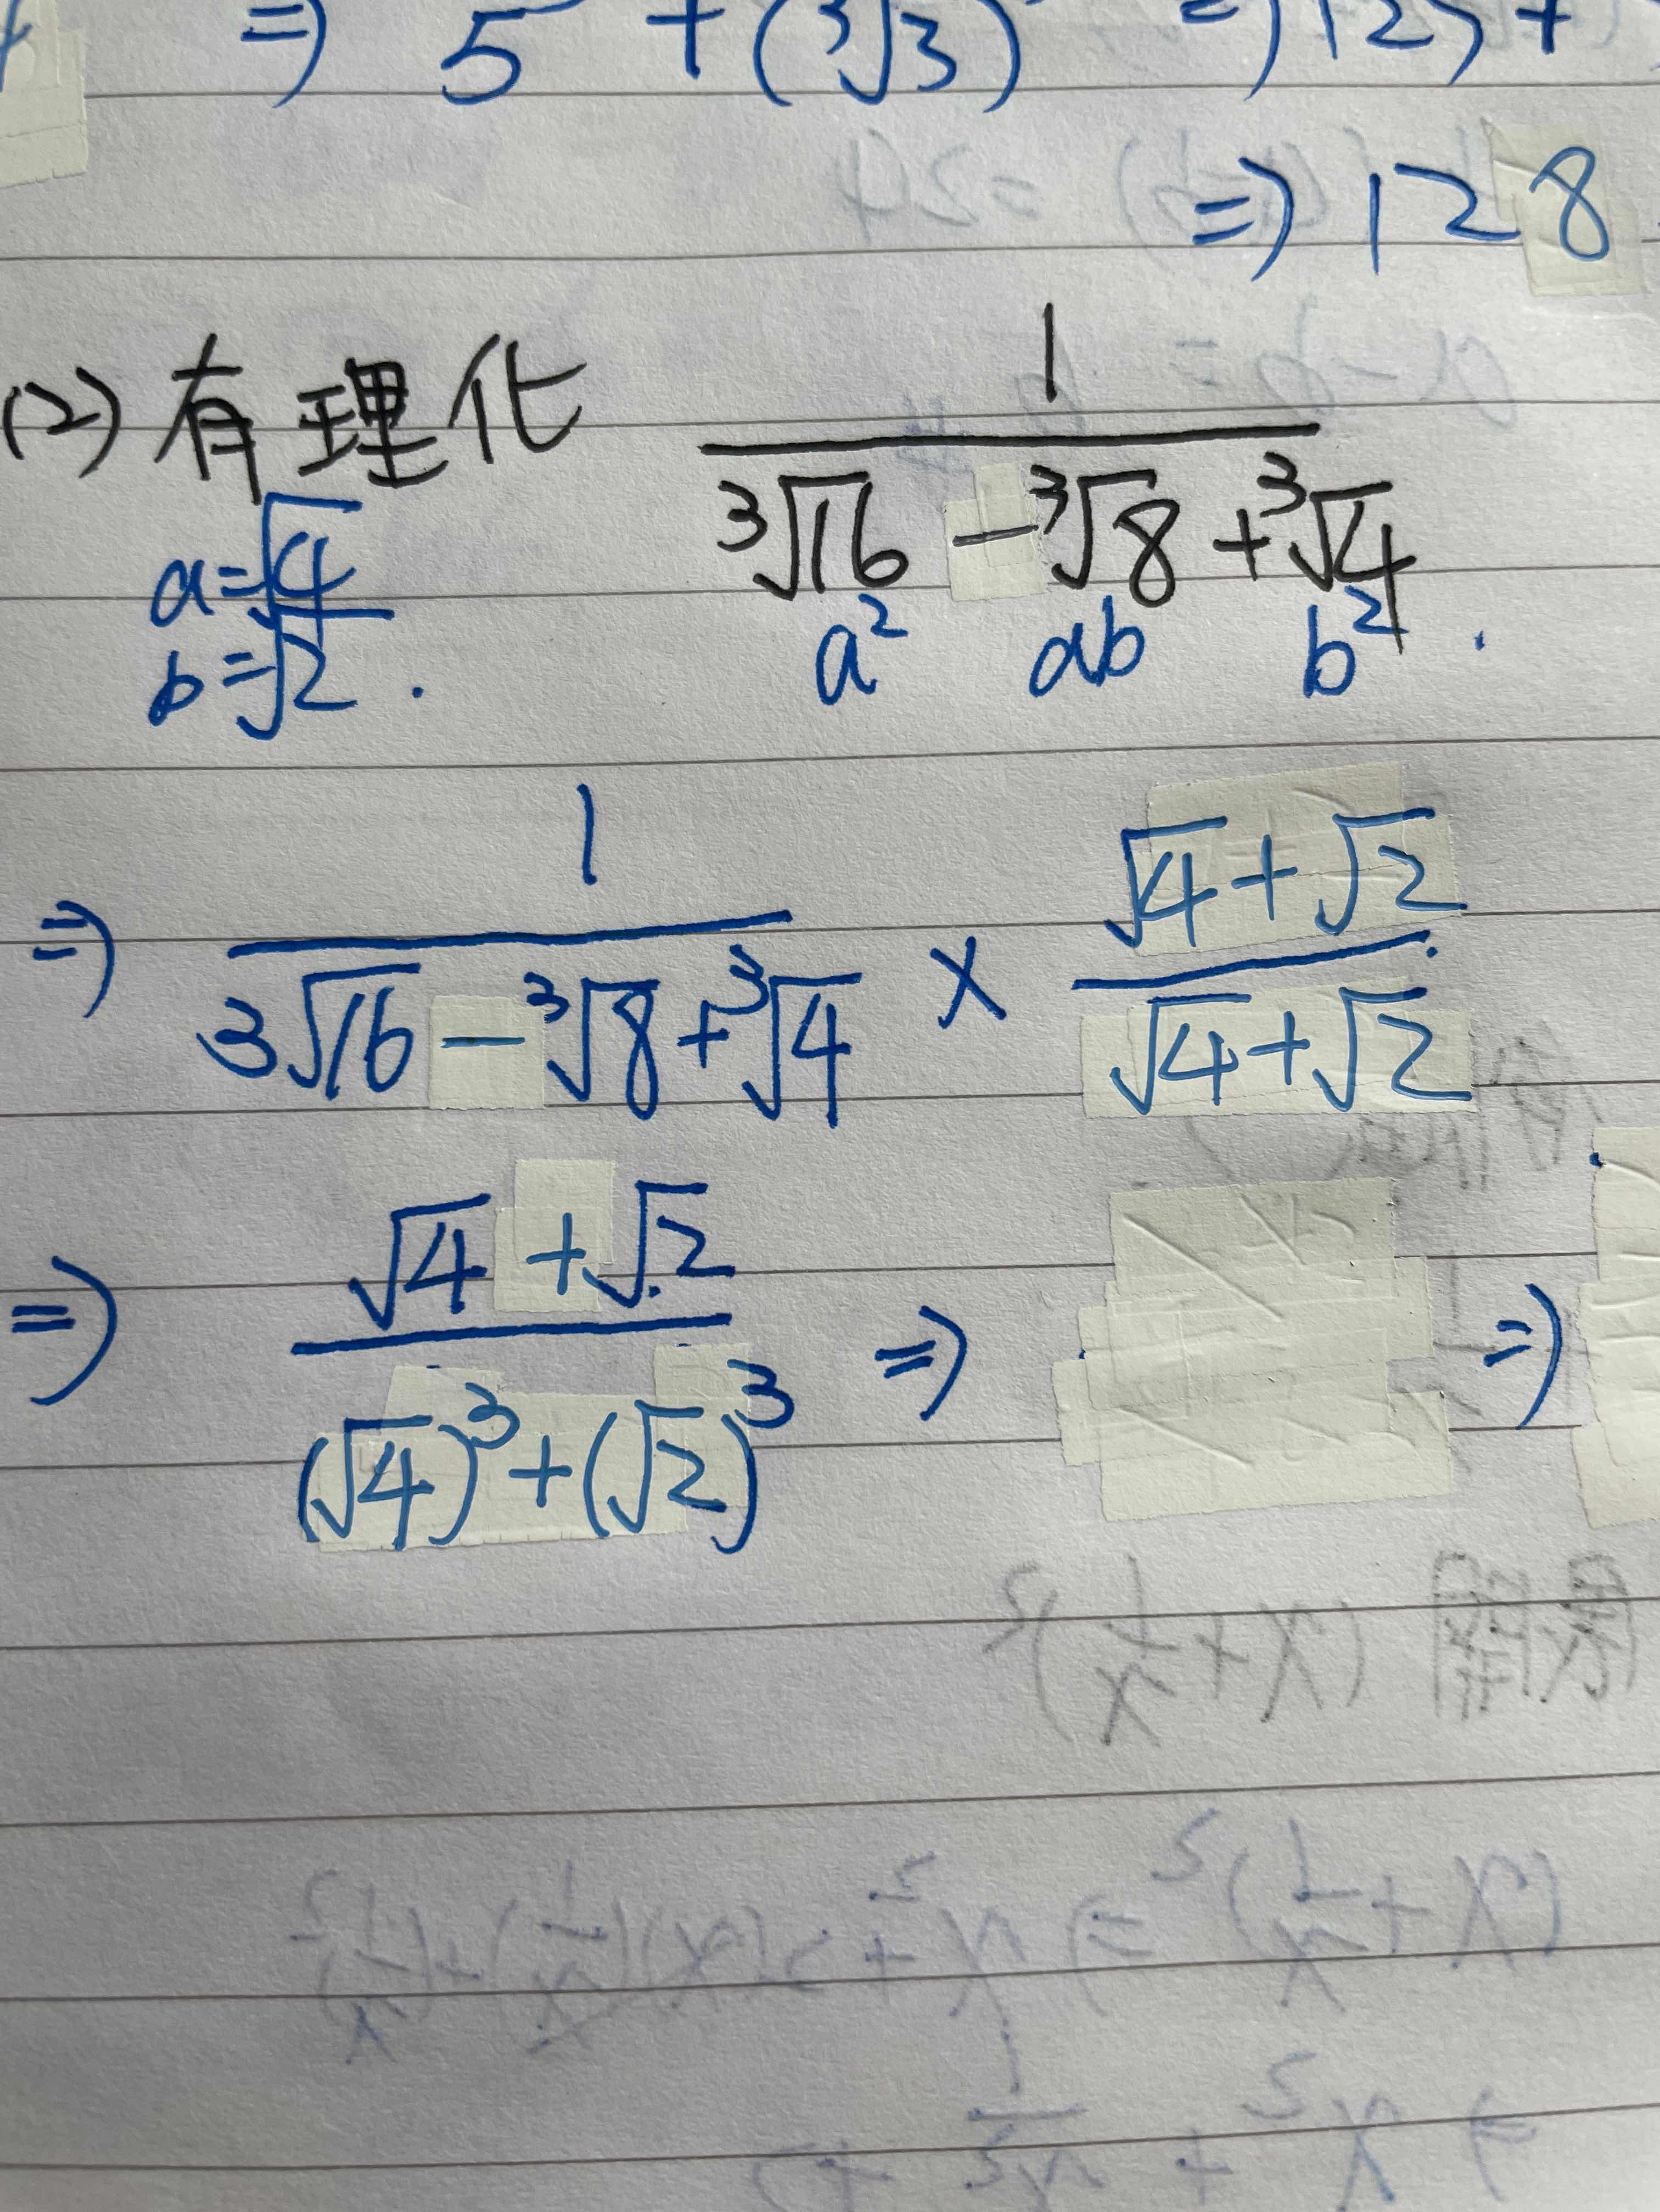 ⇒ 5 + (³√3) ⇒ 125 +
⇒ 128
(2) 有理化 1/(³√16 - ³√8 + ³√4)
a=√4 a² ab b²
b=√2.
⇒ 1/(3√16 - ³√8 + ³√4) × (√4+√2)/(√4+√2)
⇒ (√4+√2)/((√4)³+(√2)³) ⇒ ⇒